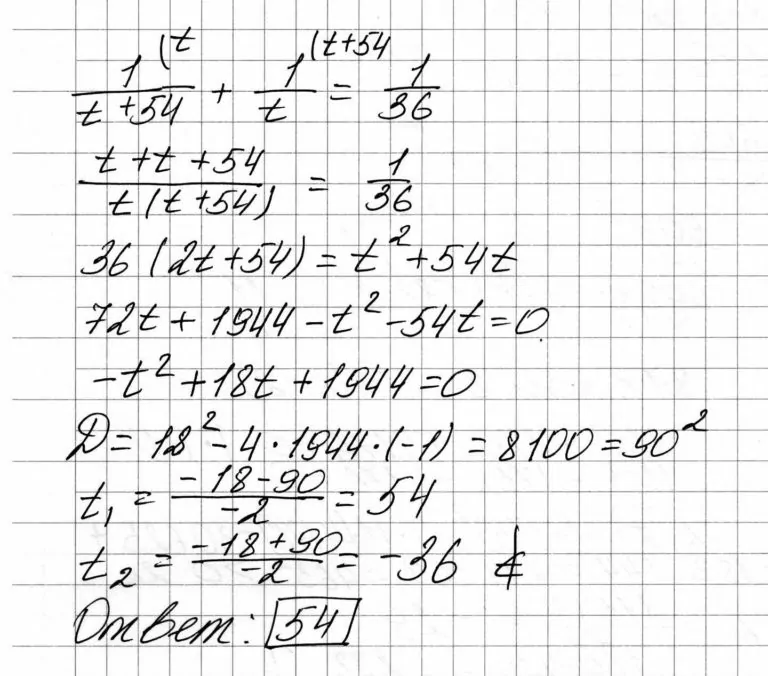 1/(t+54) (t + 1/t (t+54 = 1/36
(t+t+54)/(t(t+54)) = 1/36
36(2t+54)=t²+54t
72t+1944-t²-54t=0
-t²+18t+1944=0
D=18²-4·1944·(-1)=8100=90²
t₁=(-18-90)/(-2)=54
t₂=(-18+90)/(-2)=-36
Ответ: 54